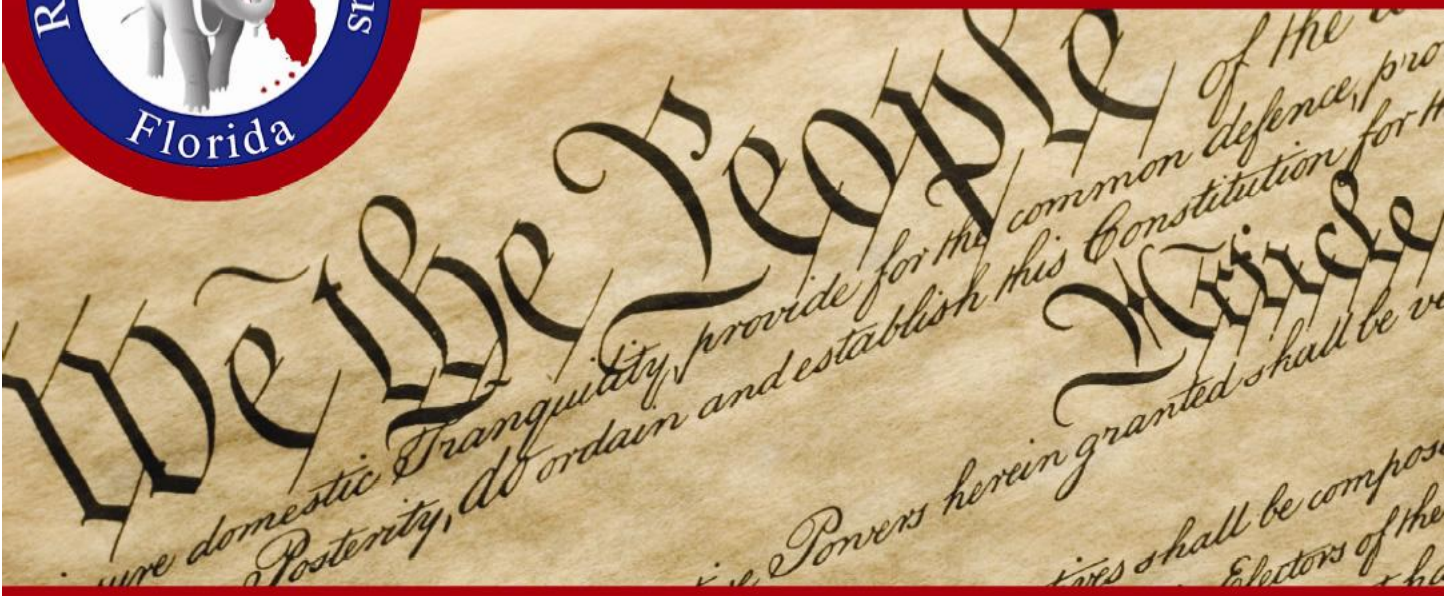 Florida
We the People of the
ure domestic Tranquility, provide for the common defence, pro
Posterity, do ordain and establish this Constitution for th
Article
Powers herein granted shall be ve
tives shall be compos
Electors of the